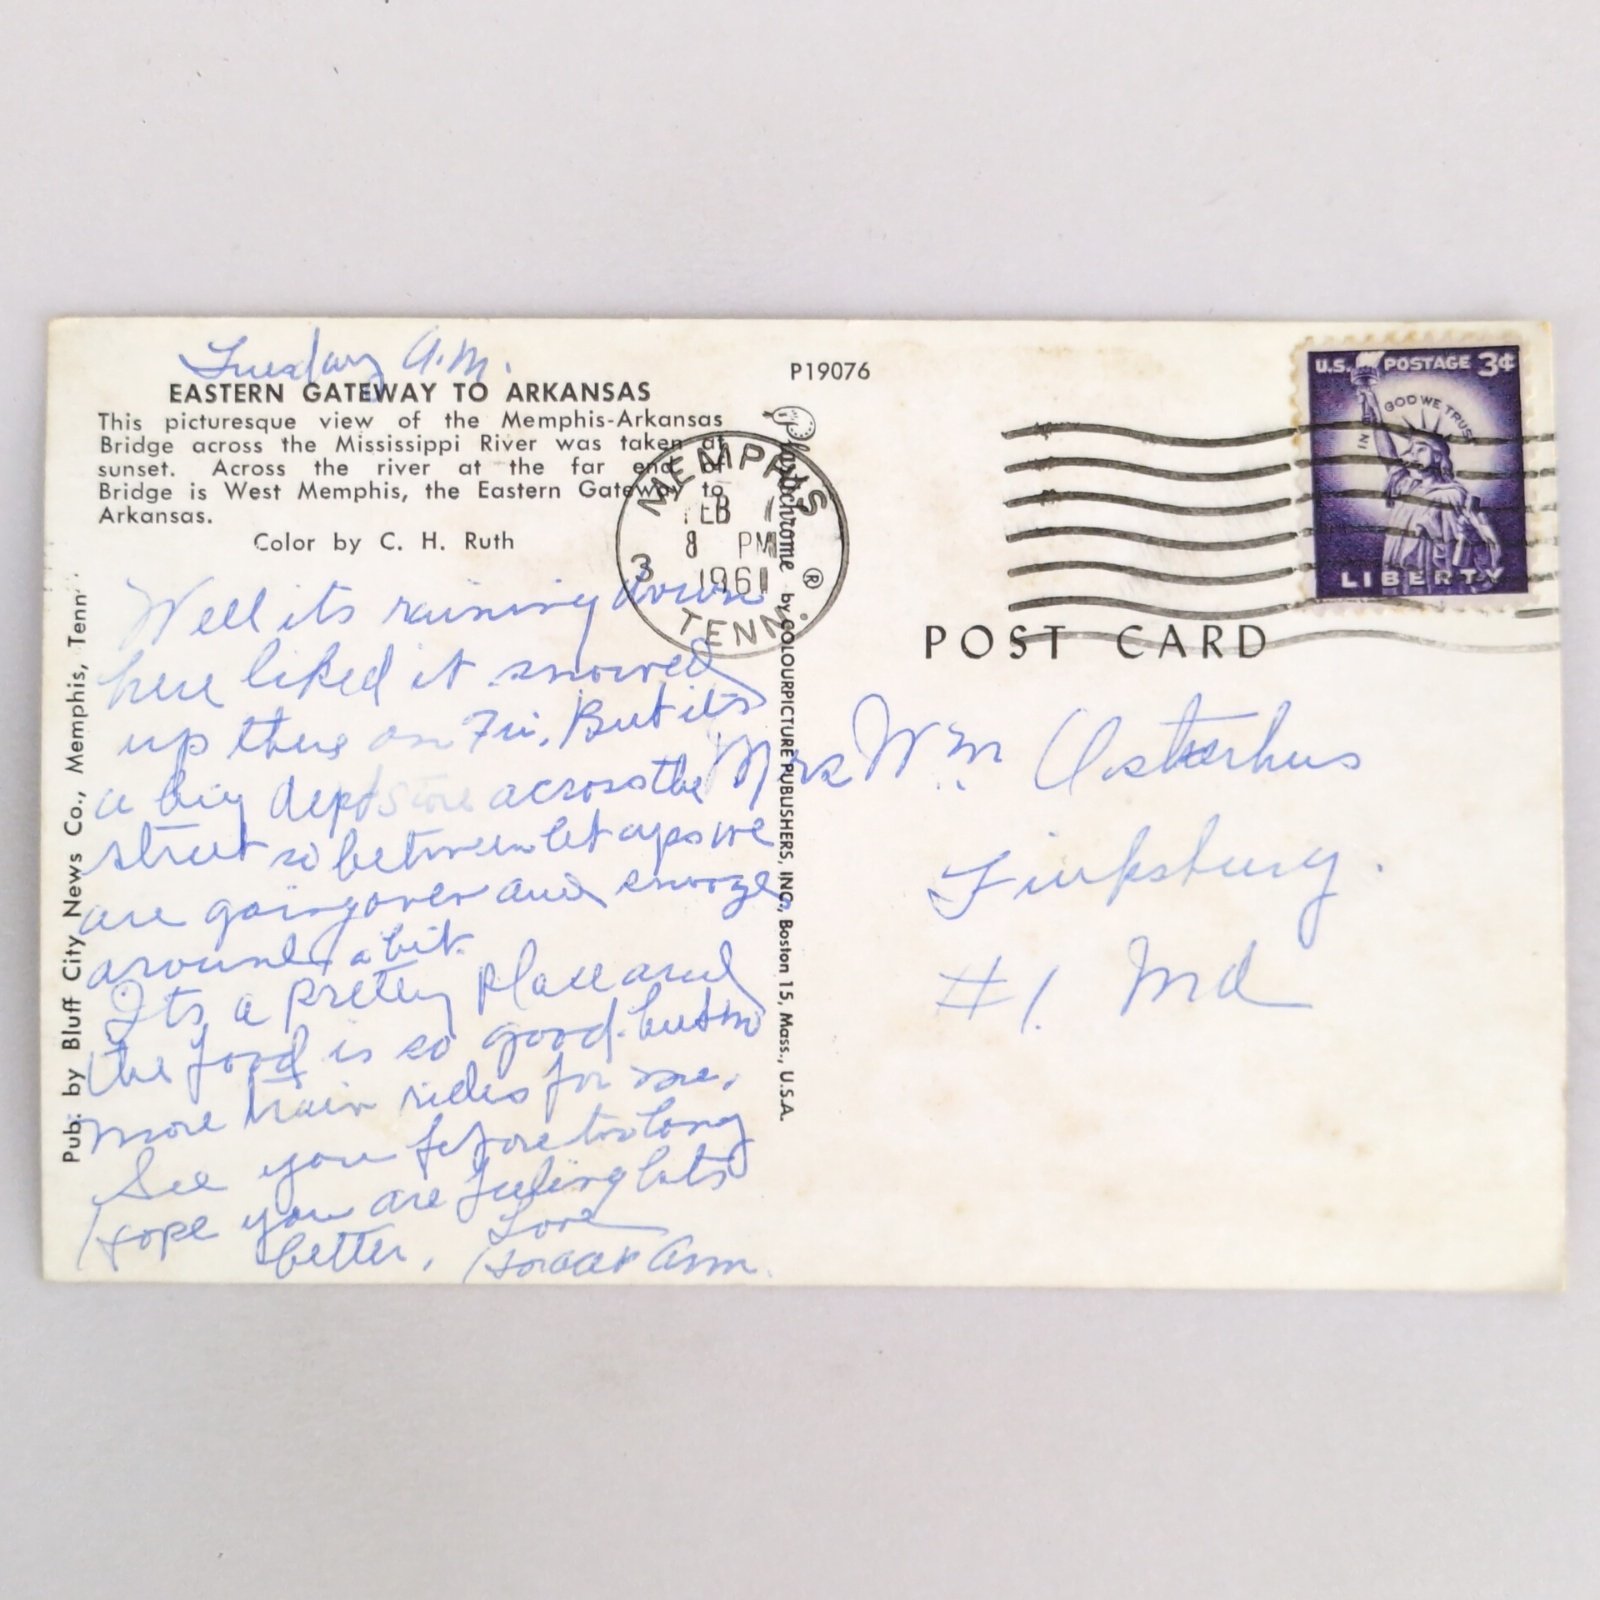 Tuesday A.M.
EASTERN GATEWAY TO ARKANSAS
This picturesque view of the Memphis-Arkansas
Bridge across the Mississippi River was taken at
sunset. Across the river at the far end of
Bridge is West Memphis, the Eastern Gateway to
Arkansas.
Color by C. H. Ruth
Well its raining down
here liked it snowed
up there on Fri. But its
a big dept store across the
street so between let ups we
are going over and snooze
around a bit.
Its a pretty place and
the food is so good. but no
more train rides for me.
See you before too long
Hope you are feeling lots
better. Love
Ann.
Pub. by Bluff City News Co., Memphis, Tenn.
P19076
Plastichrome ® by COLOURPICTURE PUBLISHERS, INC., Boston 15, Mass., U.S.A.
MEMPHIS
FEB 7
8 PM
1961
3
TENN.
U.S. POSTAGE 3¢
IN GOD WE TRUST
LIBERTY
POST CARD
Mrs Wm Osterhus
Finksburg.
#1. Md